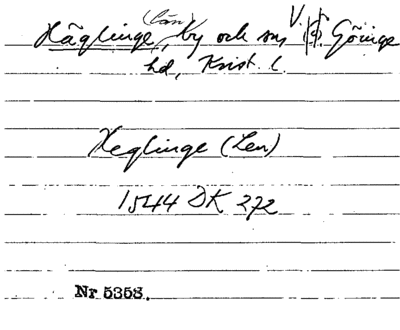 (län) V.
Häglinge, by och sn, Göinge
hd, Krist. l.
Heglinge (Len)
1544 DK 272
Nr 5358.